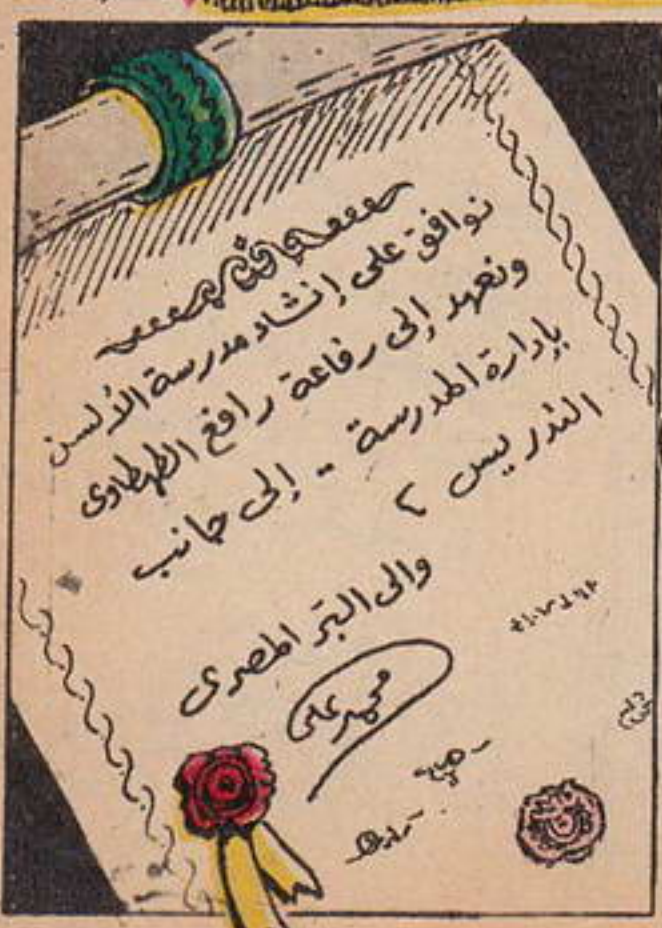 نوافق على إنشاء مدرسة الألسن
ونعهد إلى رفاعة رافع الطهطاوى
بإدارة المدرسة .. إلى جانب
التدريس ،
والى البر المصرى
محمد على